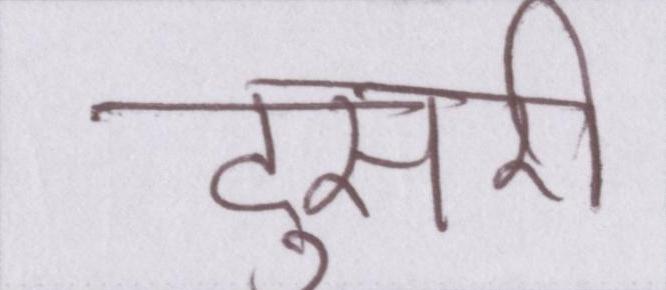 दुसरी